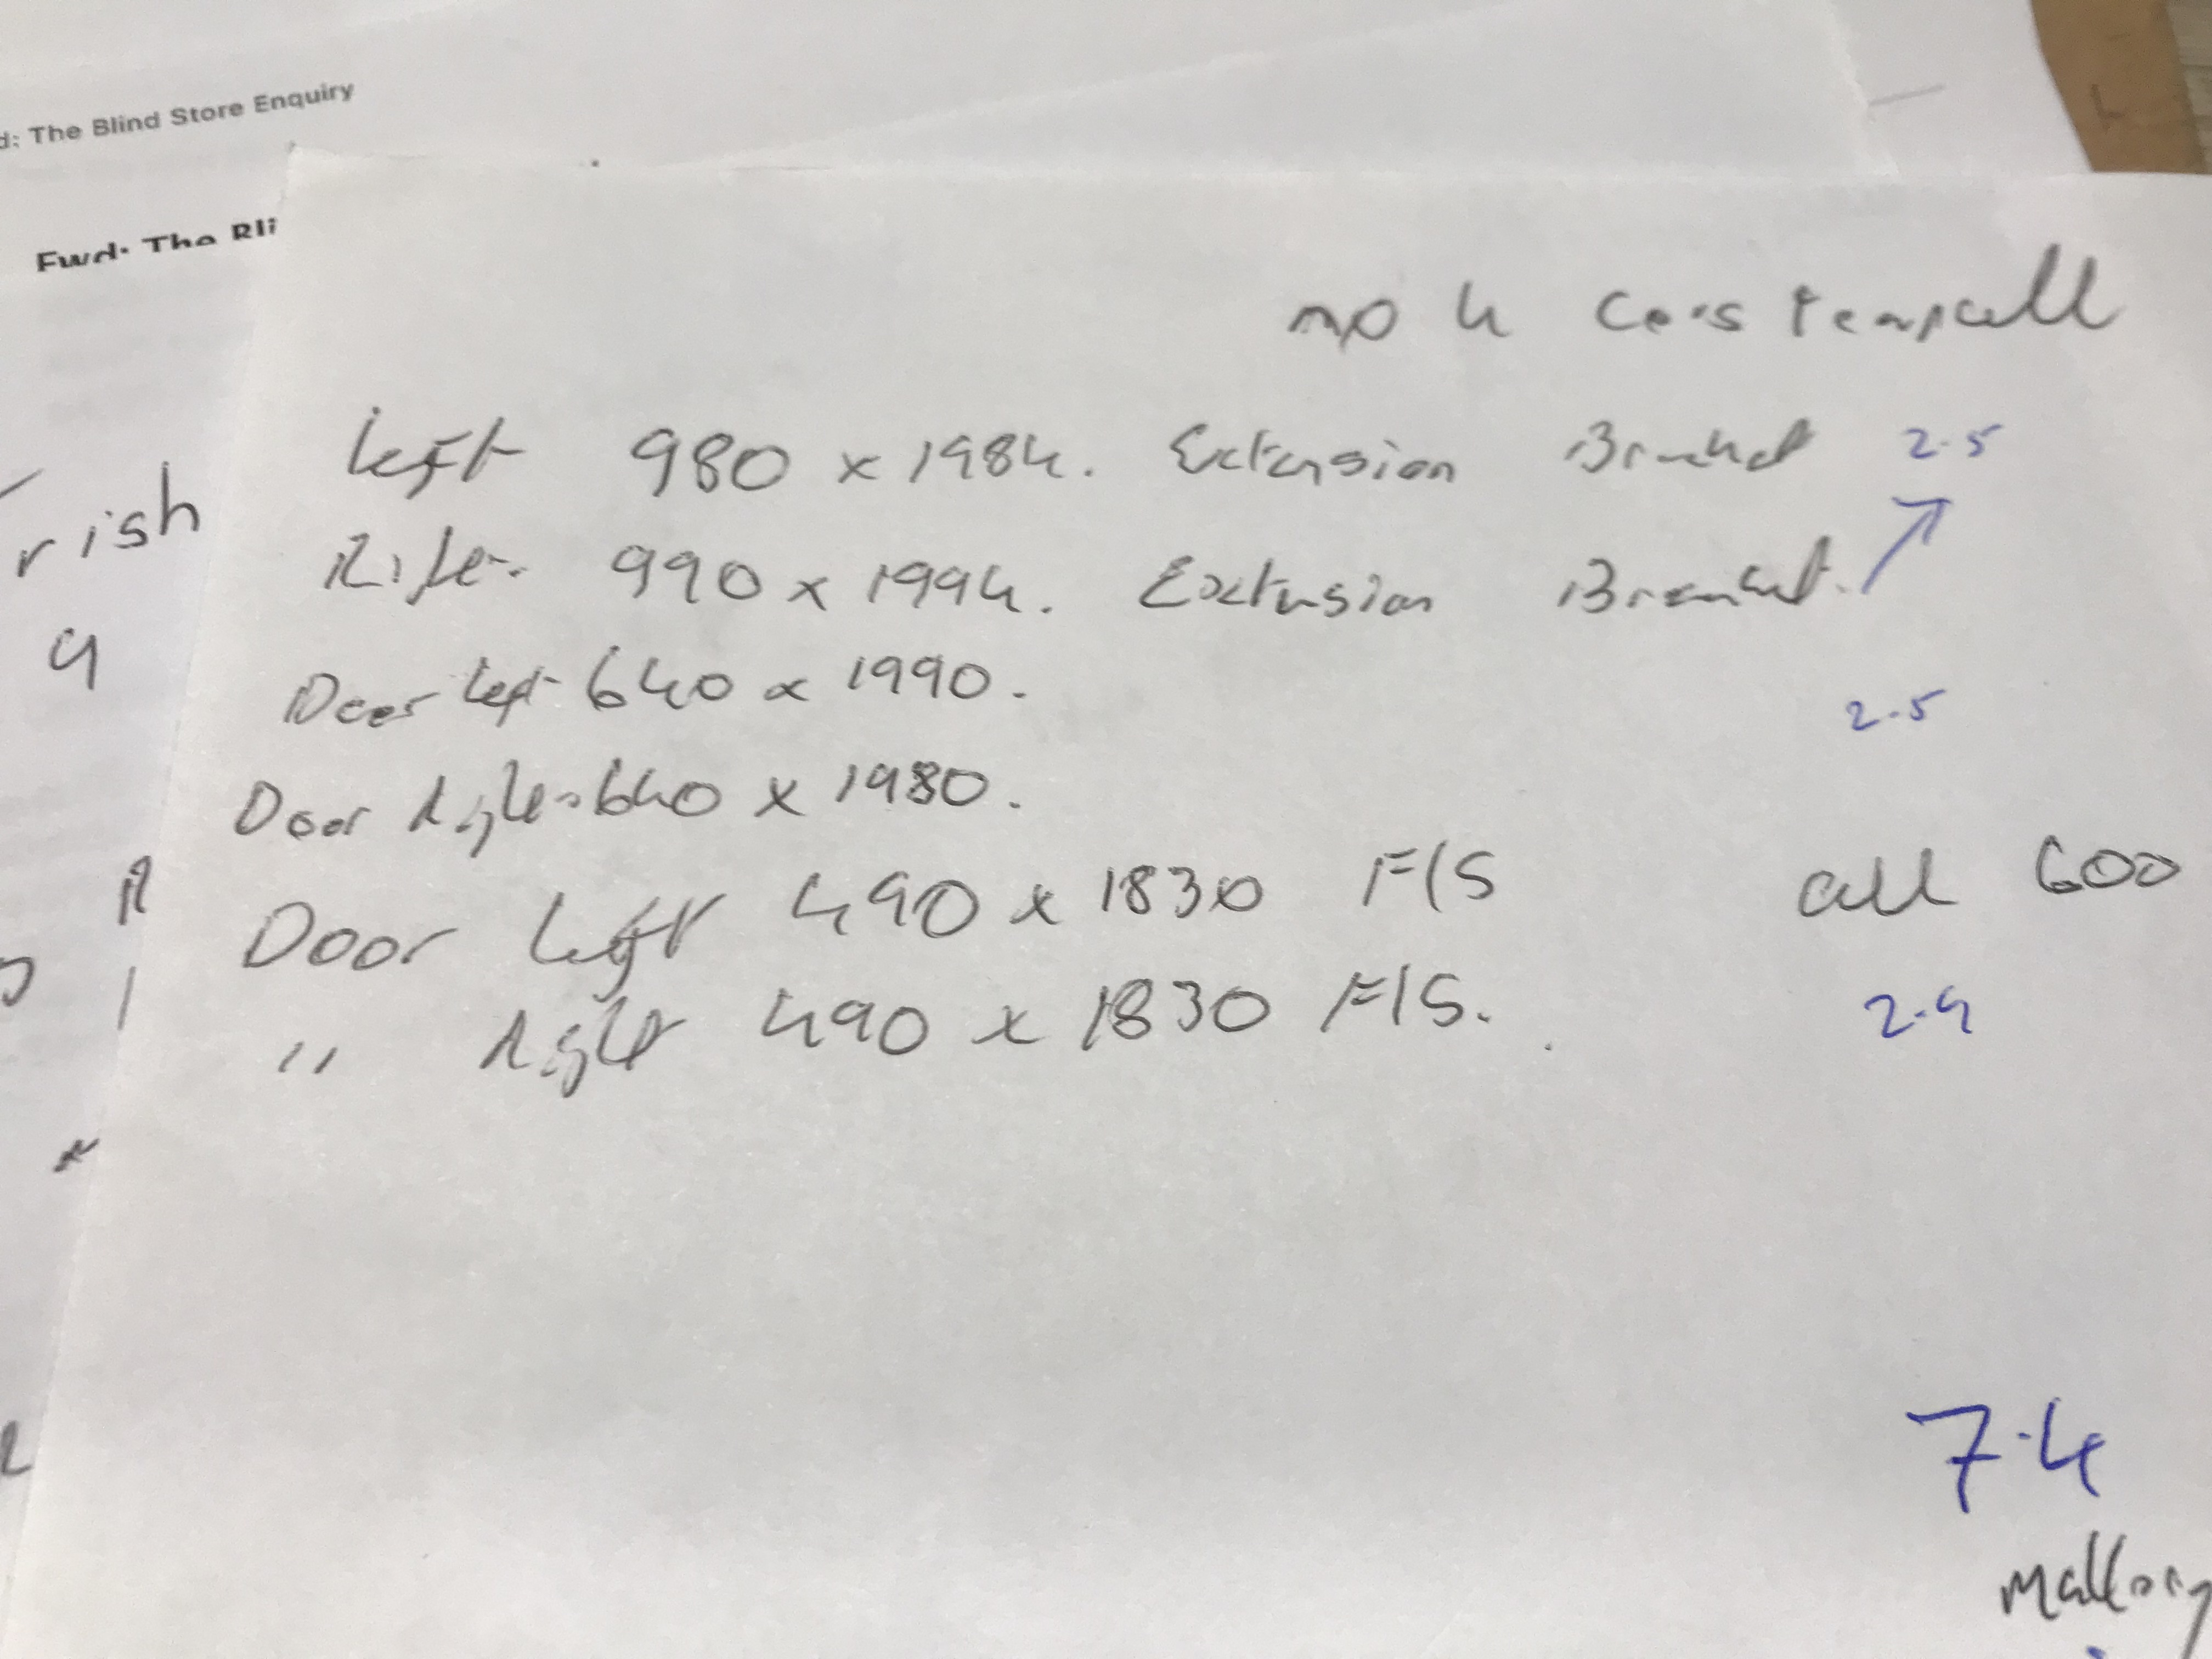 d: The Blind Store Enquiry
Fwd: The Bli
no 4
Left 980 x 1984. Extension Bracket 2.5
Right 990 x 1994. Extension Bracket.
Door Left 640 x 1990.
2.5
Door Right 640 x 1980.
Door Left 490 x 1830 F/S all 600
" Right 490 x 1830 F/S. 2.4
rish
4
R
7.4